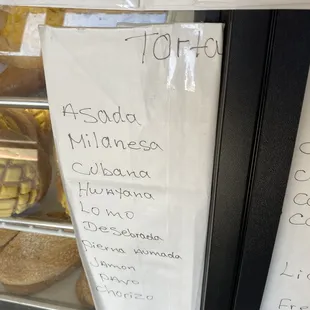 Torta
Asada
Milanesa
Cubana
Hwayana
Lomo
Desebrada
Pierna Humada
Jamon
Pavo
Chorizo